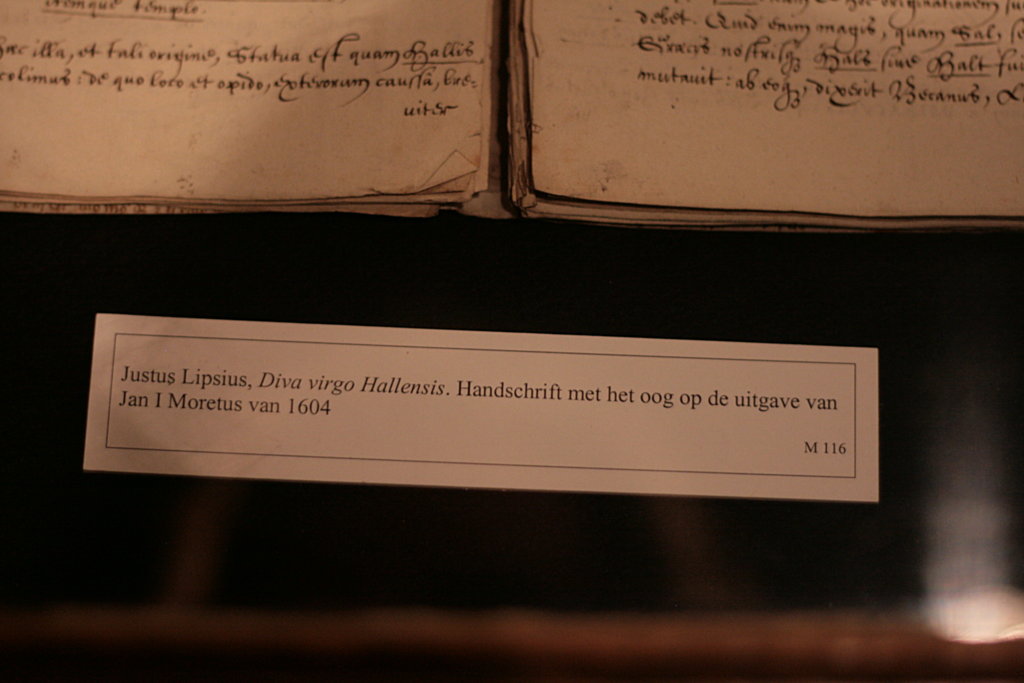 itemque templo.
Hæc illa, et tali origine, Statua est quam Hallis
colimus: de quo loco et opido, exterorum caussâ, bre-
uiter
debet. Quid enim magis, quam Sal,
Græcis nostrisq; Hals siue Halt
mutauit: ab eoq;, dixerit Becanus,
Justus Lipsius, Diva virgo Hallensis. Handschrift met het oog op de uitgave van
Jan I Moretus van 1604
M 116